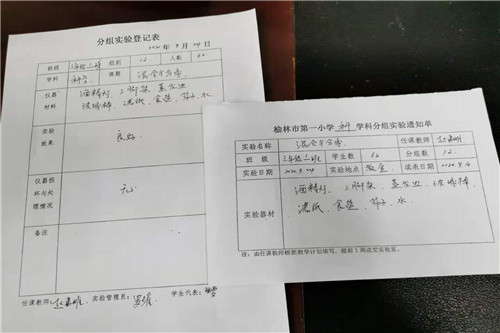 分组实验登记表
2020 年 9 月 日
班级 三年级三班 组别 12 人数 62
学科 科学 课题 混合与分离
仪器 酒精灯 三脚架 蒸发皿
材料 玻璃棒 滤纸 食盐 筛子 水
实验
效果
良好
仪器损
坏与处
理情况
无
备注
任课教师： 实验管理员： 学生代表：
榆林市第一小学 科 学科分组实验通知单
实验名称 混合与分离 任课教师
班级 三年级三班 学生数 62 分组数 12
实验日期 实验地点 教室 填表日期
实验器材 酒精灯 三脚架 蒸发皿 玻璃棒
滤纸 食盐 筛子 水
注：由任课教师根据教学计划填写，提前1周送交实验室。